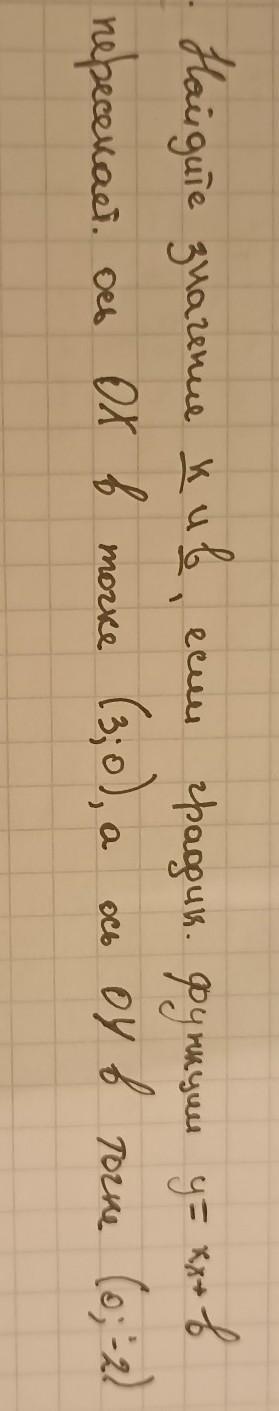 . Найдите значение к и в, если график. функции y = кx + в
пересекает. ось OX в точке (3;0), а ось OY в точке (0;-2)